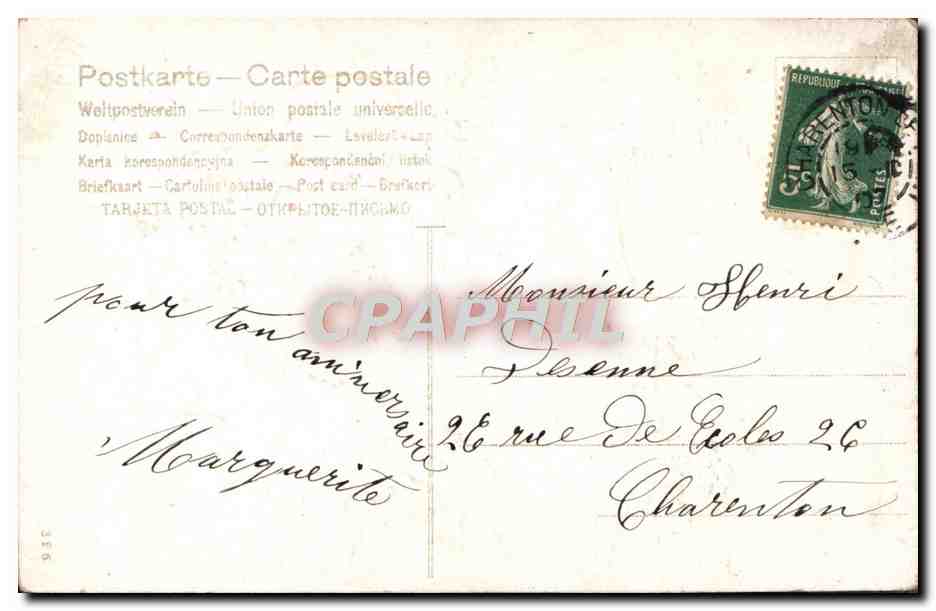 Postkarte — Carte postale
Weltpostverein — Union postale universelle
Dopisnice — Correspondenzkarte — Levelező-Lap
Karta korespondencyjna — Korespondenční lístek
Briefkaart — Cartolina postale — Post card — Brefkort
TARJETA POSTAL — ОТКРЫТОЕ-ПИСЬМО
REPUBLIQUE
POSTES
CHARENTON
pour ton anniversaire
Marguerite
CPAPHIL
Monsieur Henri
Desenne
26 rue de Ecoles 26
Charenton
336